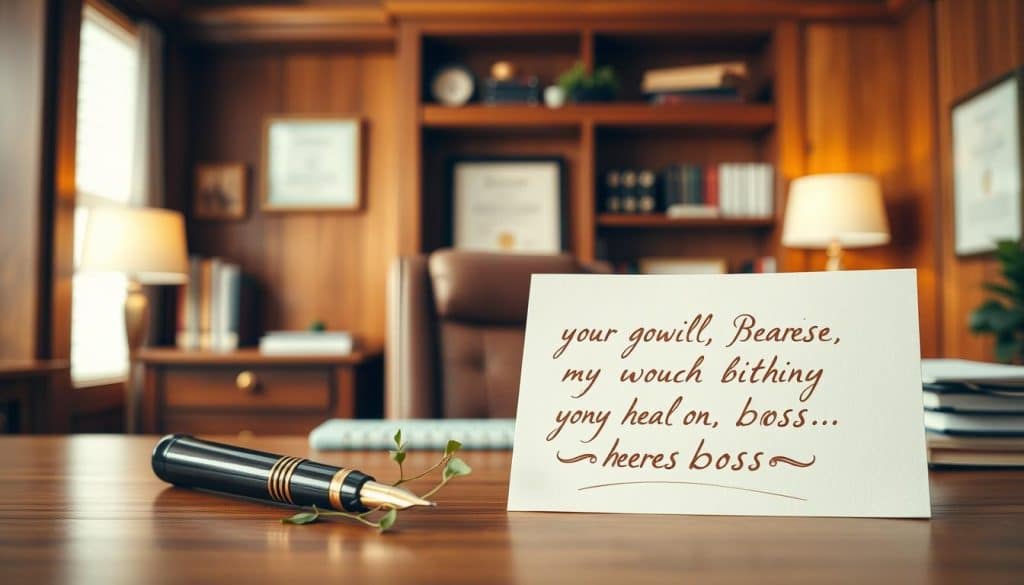 your gowill, Bearese,
my wouch bithiny
yony heal on, boss...
heeres boss